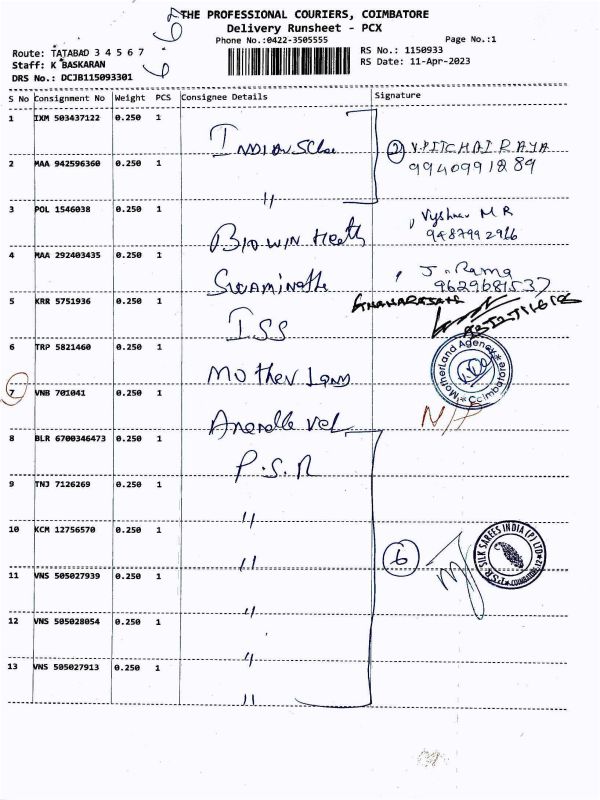 THE PROFESSIONAL COURIERS, COIMBATORE
Delivery Runsheet - PCX
Phone No.:0422-3505555
Page No.:1
Route: TATABAD 3 4 5 6 7
Staff: K BASKARAN
DRS No.: DCJB115093301
RS No.: 1150933
RS Date: 11-Apr-2023
S No Consignment No Weight PCS Consignee Details Signature
1 IXM 503437122 0.250 1 INDIAN
(2) V.PITCHAI RAYA
9940991889
2 MAA 942596360 0.250 1 "
3 POL 1546038 0.250 1 BIOWIN Heath
M R
4 MAA 292403435 0.250 1 SWAMINATHA
J. Rama
5 KRR 5751936 0.250 1 ISS
GNANARAJAN
6 TRP 5821460 0.250 1 Mother Land
MotherLand Agency Coimbatore
7 VNB 701041 0.250 1
N/A
8 BLR 6700346473 0.250 1 P.S.R
9 TNJ 7126269 0.250 1 "
10 KCM 12756570 0.250 1 "
(6)
PSR SILK SAREES INDIA (P) LTD COIMBATORE-12
11 VNS 505027939 0.250 1 "
12 VNS 505028054 0.250 1 "
13 VNS 505027913 0.250 1 "